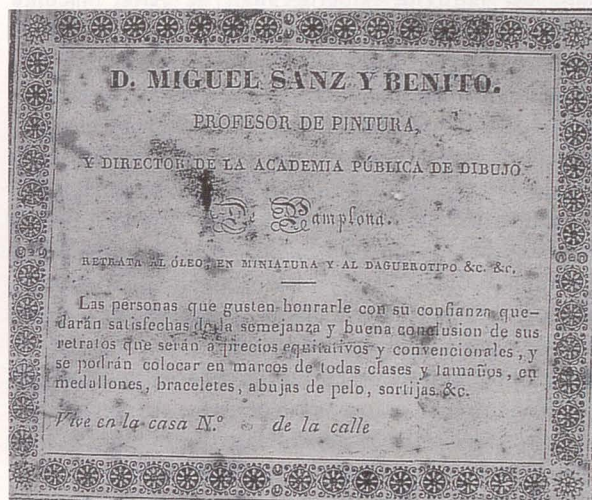 D. MIGUEL SANZ Y BENITO.
PROFESOR DE PINTURA,
Y DIRECTOR DE LA ACADEMIA PÚBLICA DE DIBUJO
De Pamplona.
RETRATA AL ÓLEO, EN MINIATURA Y AL DAGUEROTIPO &c. &c.
Las personas que gusten honrarle con su confianza que-
darán satisfechas de la semejanza y buena conclusion de sus
retratos que serán a precios equitativos y convencionales, y
se podrán colocar en marcos de todas clases y tamaños, en
medallones, braceletes, abujas de pelo, sortijas &c.
Vive en la casa N.º de la calle